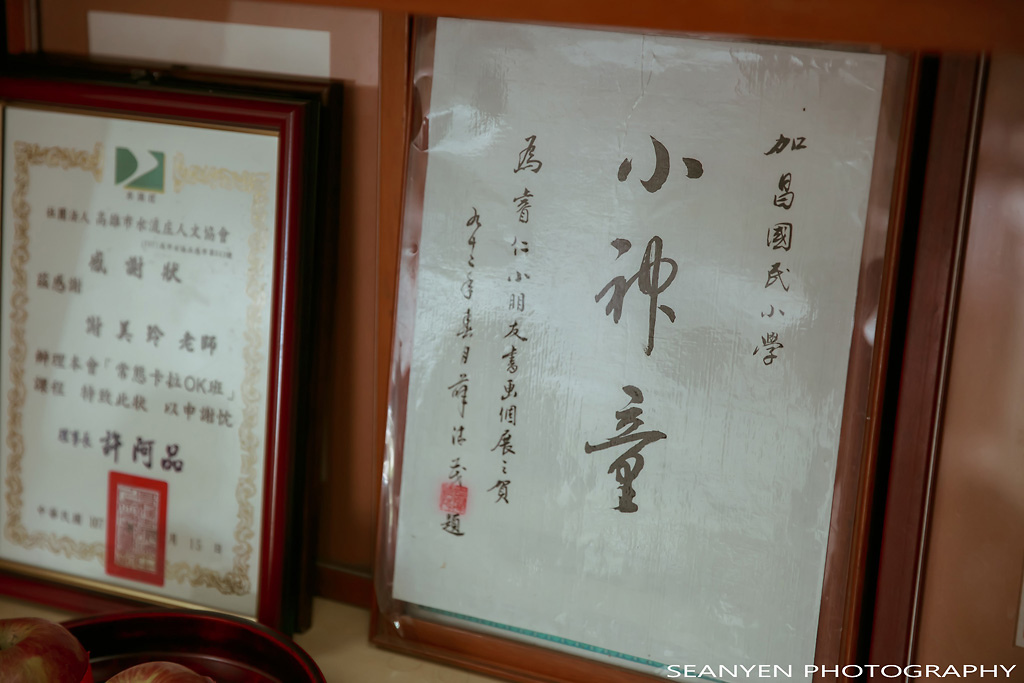 社團法人 高雄市永清庄人文協會
感謝狀
茲感謝
謝美玲 老師
辦理本會「常態卡拉OK班」
課程 特致此狀 以申謝忱
理事長 許阿品
中華民國 107
月 15 日
加昌國民小學
小神童
為睿仁小朋友書畫個展之賀
九十二年春月薛清茂題
SEANYEN PHOTOGRAPHY